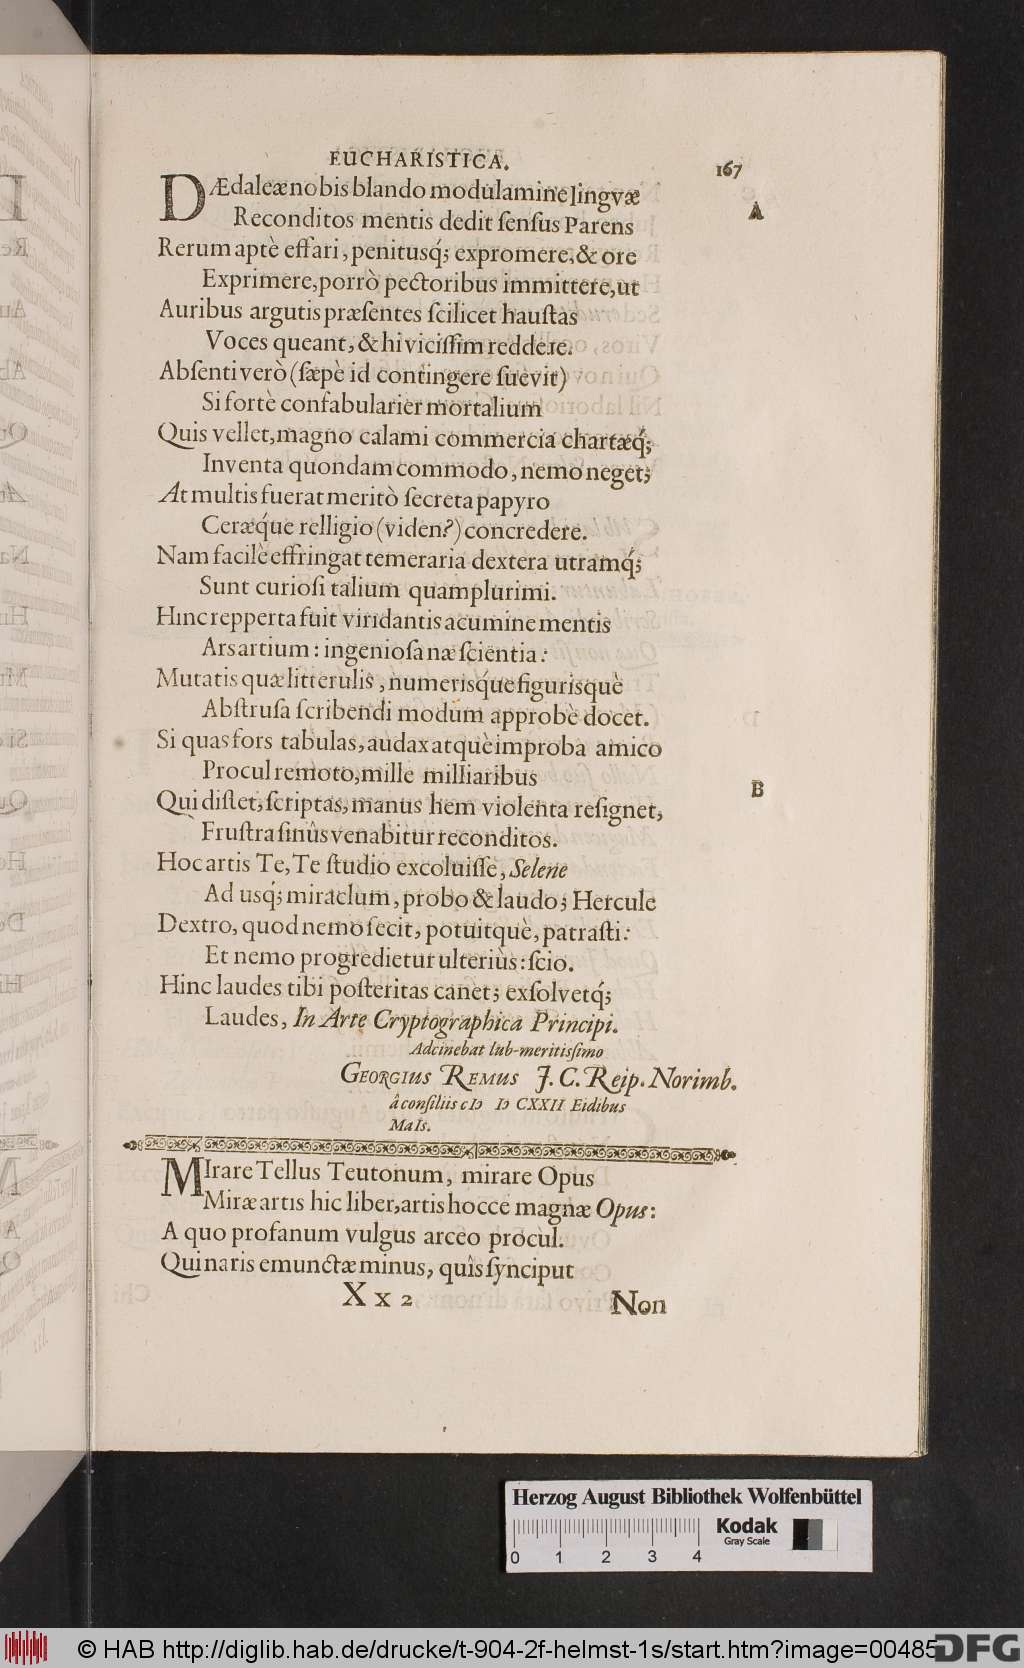 EUCHARISTICA. 167
DÆdaleæ nobis blando modulamine lingvæ
A
Reconditos mentis dedit ſenſus Parens
Rerum aptè effari, penitusq́; expromere, & ore
Exprimere, porrò pectoribus immittere, ut
Auribus argutis præſentes ſcilicet hauſtas
Voces queant, & hi viciſſim reddere.
Abſenti verò (ſæpè id contingere ſuevit)
Si fortè confabularier mortalium
Quis vellet, magno calami commercia chartæq́;
Inventa quondam commodo, nemo neget;
At multis fuerat meritò ſecreta papyro
Ceræq́ue relligio (viden?) concredere.
Nam facilè effringat temeraria dextera utramq́;
Sunt curioſi talium quamplurimi.
Hinc repperta fuit viridantis acumine mentis
Ars artium: ingenioſa næ ſcientia:
Mutatis quæ litterulis, numerisq́ue figurisquè
Abſtruſa ſcribendi modum approbè docet.
Si quas fors tabulas, audax atquè improba amico
Procul remoto, mille milliaribus
B
Qui diſtet, ſcriptas, manus hem violenta reſignet,
Fruſtra ſinûs venabitur reconditos.
Hoc artis Te, Te ſtudio excoluiſſe, Selene
Ad usq́; miraclum, probo & laudo; Hercule
Dextro, quod nemo fecit, potuitquè, patraſti:
Et nemo progredietur ulteriùs: ſcio.
Hinc laudes tibi poſteritas canet; exſolvetq́;
Laudes, In Arte Cryptographica Principi.
Adcinebat lub-meritiſsimo
GEORGIUS REMUS J. C. Reip. Norimb.
â conſiliis cIↃ IↃ CXXII Eidibus
MaIs.
MIrare Tellus Teutonum, mirare Opus
Miræ artis hic liber, artis hocce magnæ Opus:
A quo profanum vulgus arceo procùl.
Qui naris emunctæ minus, quîs ſynciput
X x 2 Non
Herzog August Bibliothek Wolfenbüttel
Kodak
Gray Scale
0 1 2 3 4
© HAB http://diglib.hab.de/drucke/t-904-2f-helmst-1s/start.htm?image=00485
DFG